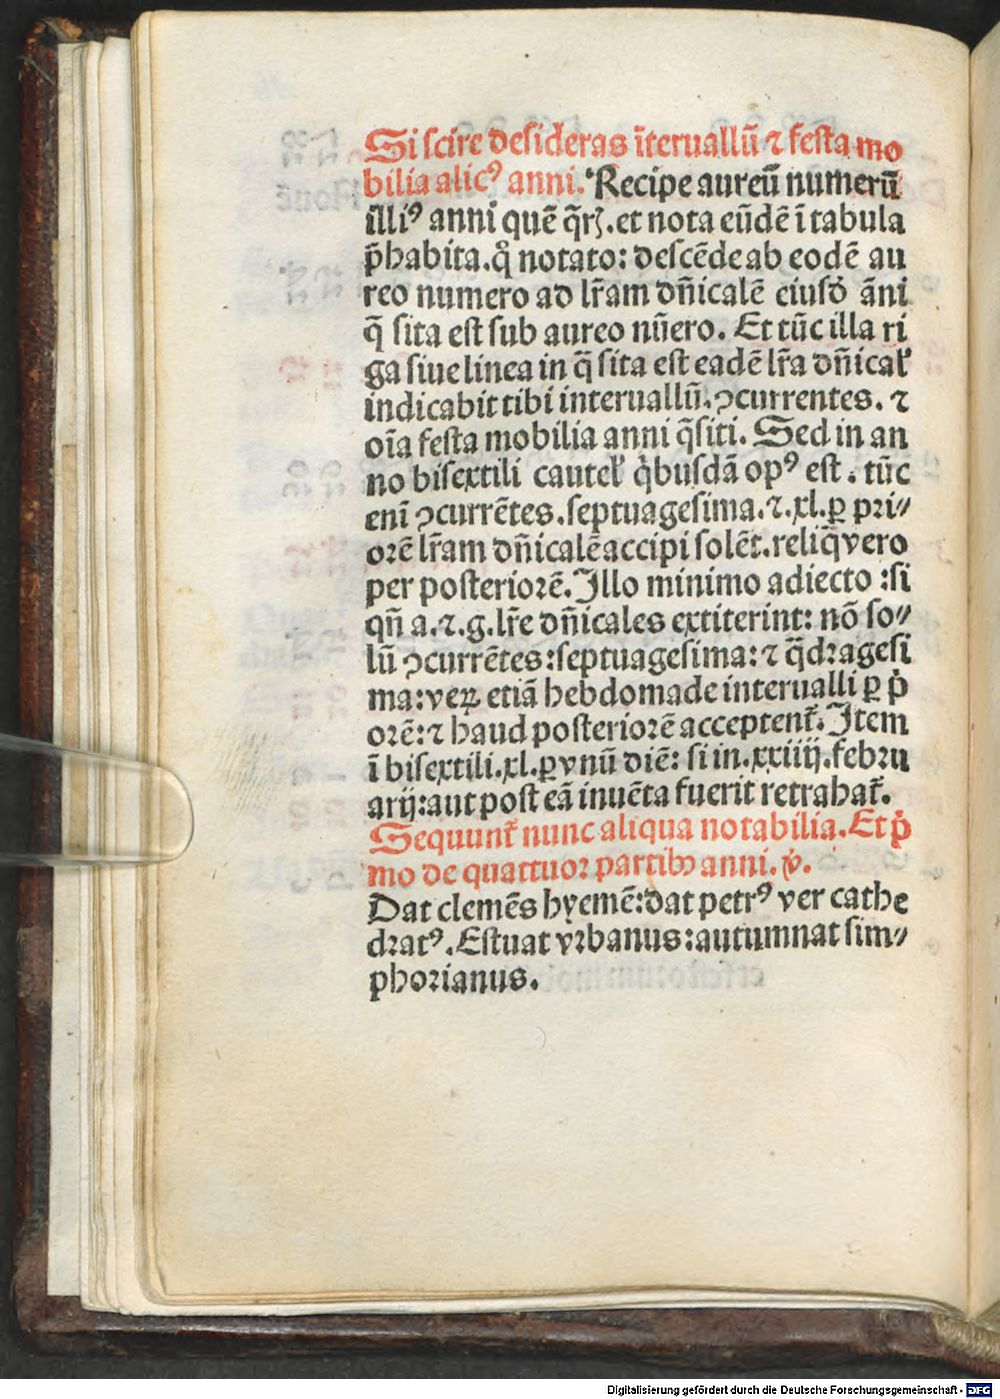 Si scire desideras ĩteruallũ ⁊ festa mo
bilia alicꝰ anni. Recipe aureũ numerũ
illiꝰ anni quẽ q̃rꝫ. et nota eũdẽ ĩ tabula
p̃habita. q̊ notato: descẽde ab eodẽ au
reo numero ad lr̃am dñicalẽ eiusd̓ ãni
q̃ sita est sub aureo nũero. Et tũc illa ri
ga siue linea in q̃ sita est eadẽ lr̃a dñical̓
indicabit tibi interuallũ. ꝯcurrentes. ⁊
oĩa festa mobilia anni q̃siti. Sed in an
no bisextili cautel̓ q̇busdã opꝰ est. tũc
enĩ ꝯcurrẽtes. septuagesima. ⁊. xl. ꝑ pꝛi⸗
oꝛẽ lr̃am dñicalẽ accipi solẽt. reliq̃ vero
per posterioꝛẽ. Illo minimo adiecto : si
qñ a. ⁊. g. lr̃e dñicales extiterint: nõ so⸗
lũ ꝯcurrẽtes: septuagesima: ⁊ q̃dꝛagesi
ma: veꝝ etiã hebdomade interualli ꝑ p̓
oꝛẽ: ⁊ haud posterioꝛẽ acceptent᷑. Item
ĩ bisextili. xl. ꝑ vnũ diẽ: si in. xxiiij. febꝛu
arij: aut post eã inuẽta fuerit retrahat᷑.
Sequunt᷑ nunc aliqua notabilia. Et p̓
mo de quattuoꝛ partibꝫ anni. v̓.
Dat clemẽs hyemẽ: dat petrꝰ ver cathe
dꝛatꝰ. Estuat vꝛbanus: autumnat sim⸗
phoꝛianus.
Digitalisierung gefördert durch die Deutsche Forschungsgemeinschaft - DFG